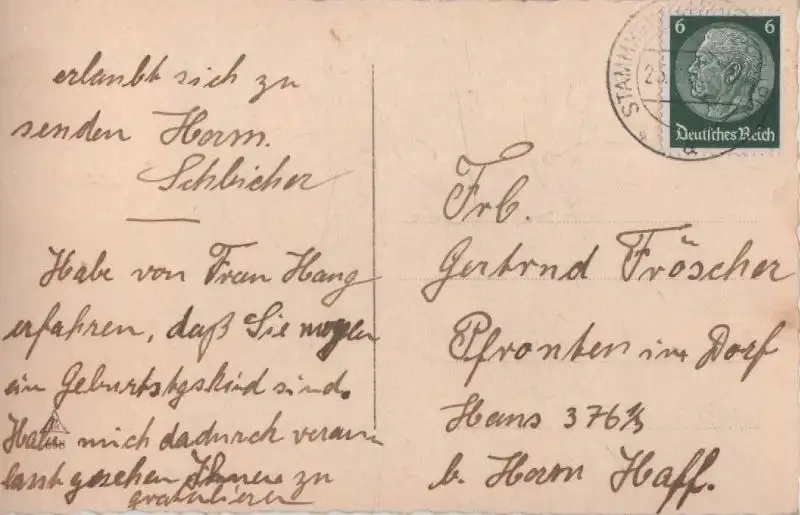 erlaubt sich zu
senden Herm.
Schleicher
Habe von Frau Haug
erfahren, daß Sie morgen
ein Geburtstgskind sind.
Habe mich dadurch veran
lasst gesehen Ihnen zu
gratulieren
6 6
Deutsches Reich
STAMMH
23.
a
Frl.
Gertrud Fröscher
Pfronten im Dorf
Haus 376 1/3
b. Herrn Haff.